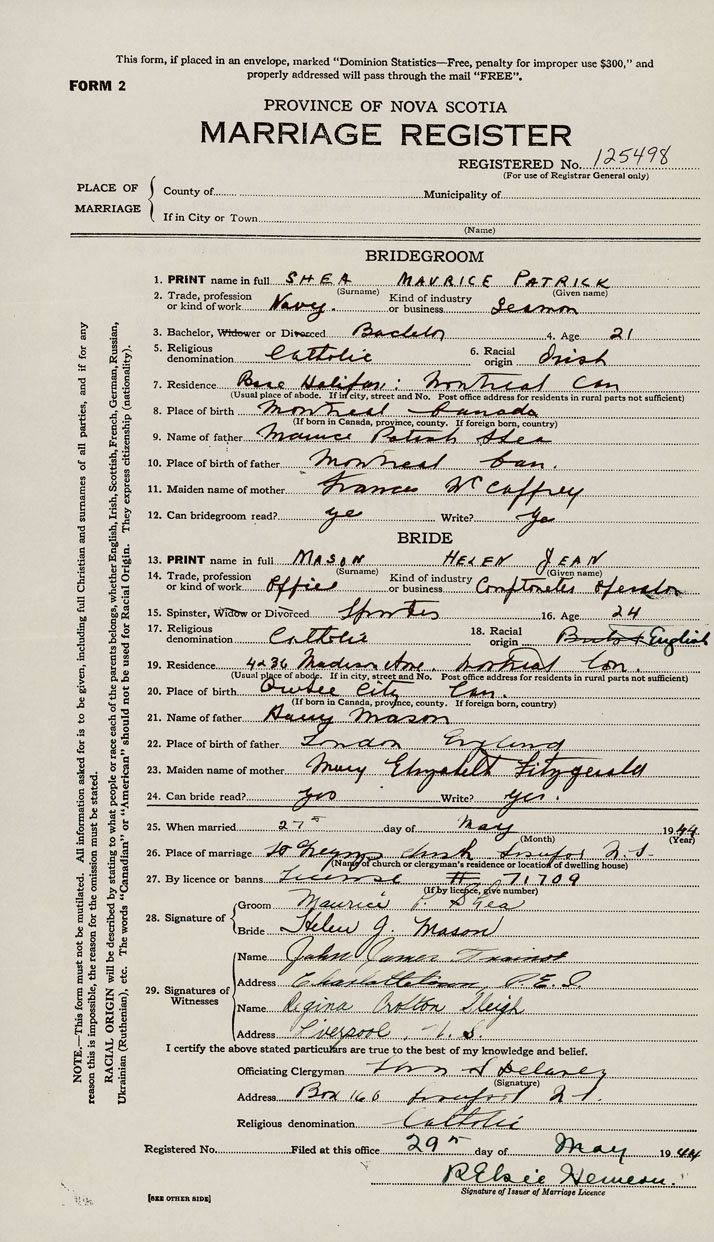 This form, if placed in an envelope, marked "Dominion Statistics—Free, penalty for improper use $300," and
properly addressed will pass through the mail "FREE".
FORM 2
PROVINCE OF NOVA SCOTIA
MARRIAGE REGISTER
REGISTERED No. 125498
(For use of Registrar General only)
PLACE OF MARRIAGE
County of Municipality of
If in City or Town
(Name)
BRIDEGROOM
1. PRINT name in full SHEA MAURICE PATRICK
(Surname) (Given name)
2. Trade, profession or kind of work Navy. Kind of industry or business Seaman
3. Bachelor, Widower or Divorced Bachelor 4. Age 21
5. Religious denomination Catholic 6. Racial origin Irish
7. Residence Base Halifax: Montreal Can
(Usual place of abode. If in city, street and No. Post office address for residents in rural parts not sufficient)
8. Place of birth Montreal Canada
(If born in Canada, province, county. If foreign born, country)
9. Name of father Maurice Patrick Shea
10. Place of birth of father Montreal Can.
11. Maiden name of mother Frances McCaffrey
12. Can bridegroom read? yes Write? Yes
BRIDE
13. PRINT name in full MASON HELEN JEAN
(Surname) (Given name)
14. Trade, profession or kind of work Office Kind of industry or business Comptometer Operator
15. Spinster, Widow or Divorced Spinster 16. Age 24
17. Religious denomination Catholic 18. Racial origin English
19. Residence 4236 Madison Ave. Montreal Can.
(Usual place of abode. If in city, street and No. Post office address for residents in rural parts not sufficient)
20. Place of birth Quebec City Can.
(If born in Canada, province, county. If foreign born, country)
21. Name of father Harry Mason
22. Place of birth of father London England
23. Maiden name of mother Mary Elizabeth Fitzgerald
24. Can bride read? yes Write? yes.
25. When married 27th day of May 1944
(Month) (Year)
26. Place of marriage St Gregory's church Liverpool N.S.
(Name of church or clergyman's residence or location of dwelling house)
27. By licence or banns License # 71709
(If by licence, give number)
28. Signature of
Groom Maurice P. Shea
Bride Helen J. Mason
29. Signatures of Witnesses
Name John James Trainor
Address Charlottetown, P.E.I.
Name Regina Sleigh
Address Liverpool, N.S.
I certify the above stated particulars are true to the best of my knowledge and belief.
Officiating Clergyman Delaney
(Signature)
Address Box 160 Liverpool N.S.
Religious denomination Catholic
Registered No. Filed at this office 29th day of May 1944
R Elsie Hemeon.
Signature of Issuer of Marriage Licence
[SEE OTHER SIDE]
NOTE.—This form must not be mutilated. All information asked for is to be given, including full Christian and surnames of all parties, and if for any
reason this is impossible, the reason for the omission must be stated.
RACIAL ORIGIN will be described by stating to what people or race each of the parents belongs, whether English, Irish, Scottish, French, German, Russian,
Ukrainian (Ruthenian), etc. The words "Canadian" or "American" should not be used for Racial Origin. They express citizenship (nationality).